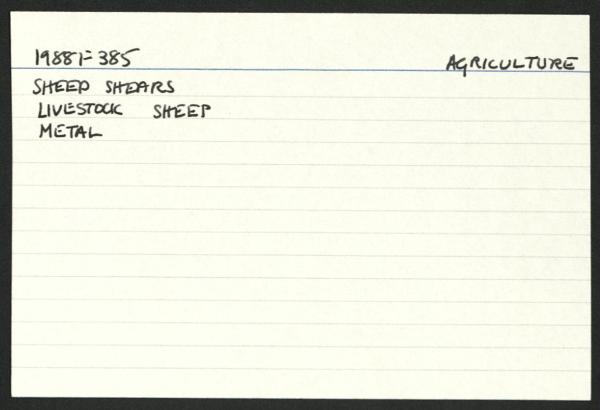 1988F-385 AGRICULTURE
SHEEP SHEARS
LIVESTOCK SHEEP
METAL